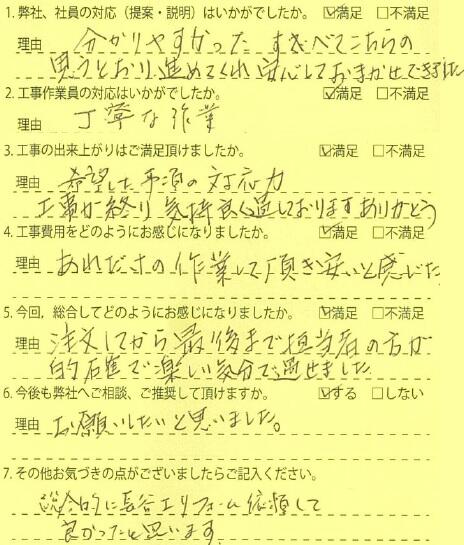 1. 弊社、社員の対応（提案・説明）はいかがでしたか。 ☑満足 □不満足
理由 分かりやすかった すべてこちらの
思うとおり進めてくれ安心しておまかせできました
2. 工事作業員の対応はいかがでしたか。 ☑満足 □不満足
理由 丁寧な作業
3. 工事の出来上がりはご満足頂けましたか。 ☑満足 □不満足
理由 希望した事項の対応力
工事が終り気持良く過しておりますありがとう
4. 工事費用をどのようにお感じになりましたか。 ☑満足 □不満足
理由 あれだけの作業して頂き安いと感じた
5. 今回、総合してどのようにお感じになりましたか。 ☑満足 □不満足
理由 注文してから最後まで担当者の方が
的確で楽しい気分で過せました
6. 今後も弊社へご相談、ご推奨して頂けますか。 ☑する □しない
理由 お願いしたいと思いました。
7. その他お気づきの点がございましたらご記入ください。
総合的に長谷工リフォーム依頼して
良かったと思います